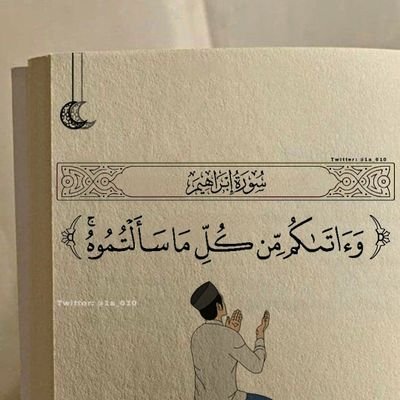 Twitter: @1a_010
سُورَةُ إِبْرَاهِيمَ
﴿وَءَاتَىٰكُم مِّن كُلِّ مَا سَأَلْتُمُوهُۚ﴾
Twitter: @1a_010